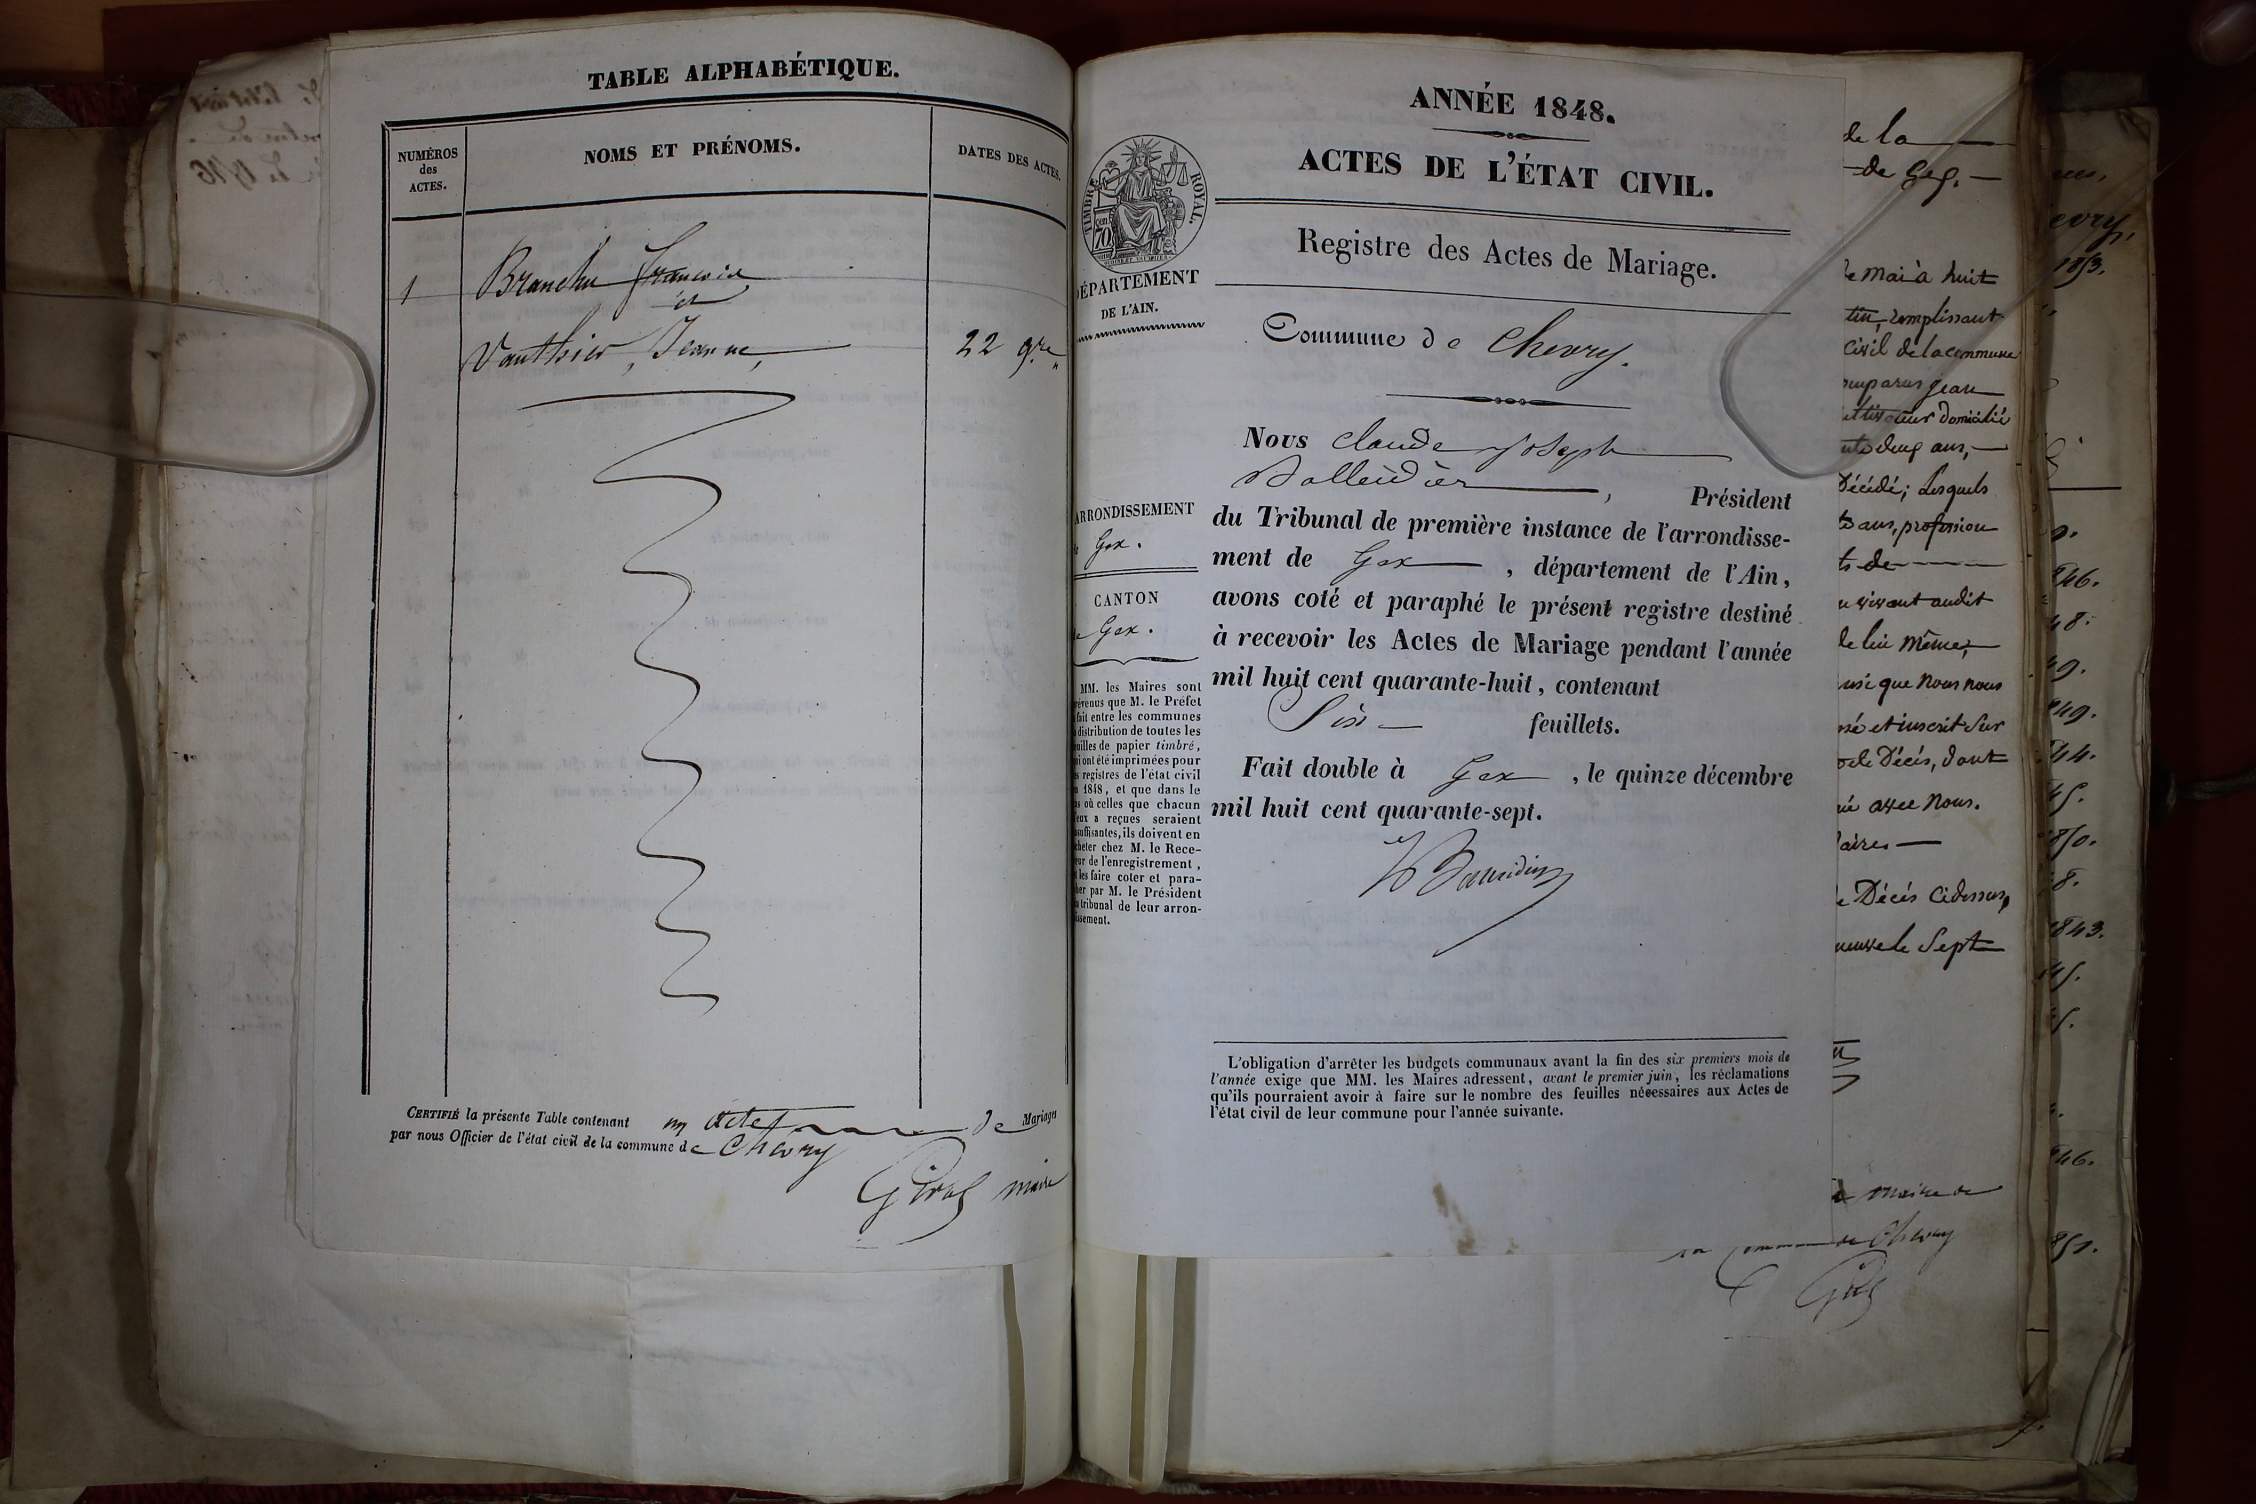 TABLE ALPHABÉTIQUE.
NUMÉROS
des
ACTES.
NOMS ET PRÉNOMS.
DATES DES ACTES.
1 Branchu François
et
Vauthier, Jeanne, 22 9.re
CERTIFIÉ la présente Table contenant un acte de Mariages
par nous Officier de l'état civil de la commune de Chevry
Girod maire
ANNÉE 1848.
ACTES DE L'ÉTAT CIVIL.
Registre des Actes de Mariage.
TIMBRE ROYAL.
70
DÉPARTEMENT
DE L'AIN.
Commune de Chevry.
ARRONDISSEMENT
Gex.
CANTON
de Gex.
MM. les Maires sont
prévenus que M. le Préfet
fait entre les communes
distribution de toutes les
feuilles de papier timbré,
qui ont été imprimées pour
les registres de l'état civil
1848, et que dans le
cas où celles que chacun
d'eux a reçues seraient
insuffisantes, ils doivent en
acheter chez M. le Rece-
veur de l'enregistrement,
et les faire coter et para-
pher par M. le Président
du tribunal de leur arron-
dissement.
Nous Claude Joseph
Balleidier, Président
du Tribunal de première instance de l'arrondisse-
ment de Gex, département de l'Ain,
avons coté et paraphé le présent registre destiné
à recevoir les Actes de Mariage pendant l'année
mil huit cent quarante-huit, contenant
Six feuillets.
Fait double à Gex, le quinze décembre
mil huit cent quarante-sept.
L'obligation d'arrêter les budgets communaux avant la fin des six premiers mois de
l'année exige que MM. les Maires adressent, avant le premier juin, les réclamations
qu'ils pourraient avoir à faire sur le nombre des feuilles nécessaires aux Actes de
l'état civil de leur commune pour l'année suivante.
de la
de Gex.
de mai à huit
remplissant
civil de la commune
comparus jean
cultivateur domicilié
deux ans,
Décédé; Lesquels
ans, profession
de
vivant audit
de lui même,
que nous nous
et inscrit sur
de Décès, dont
avec nous.
Décès cidessus,
le sept
maire de
la commune de Chevry